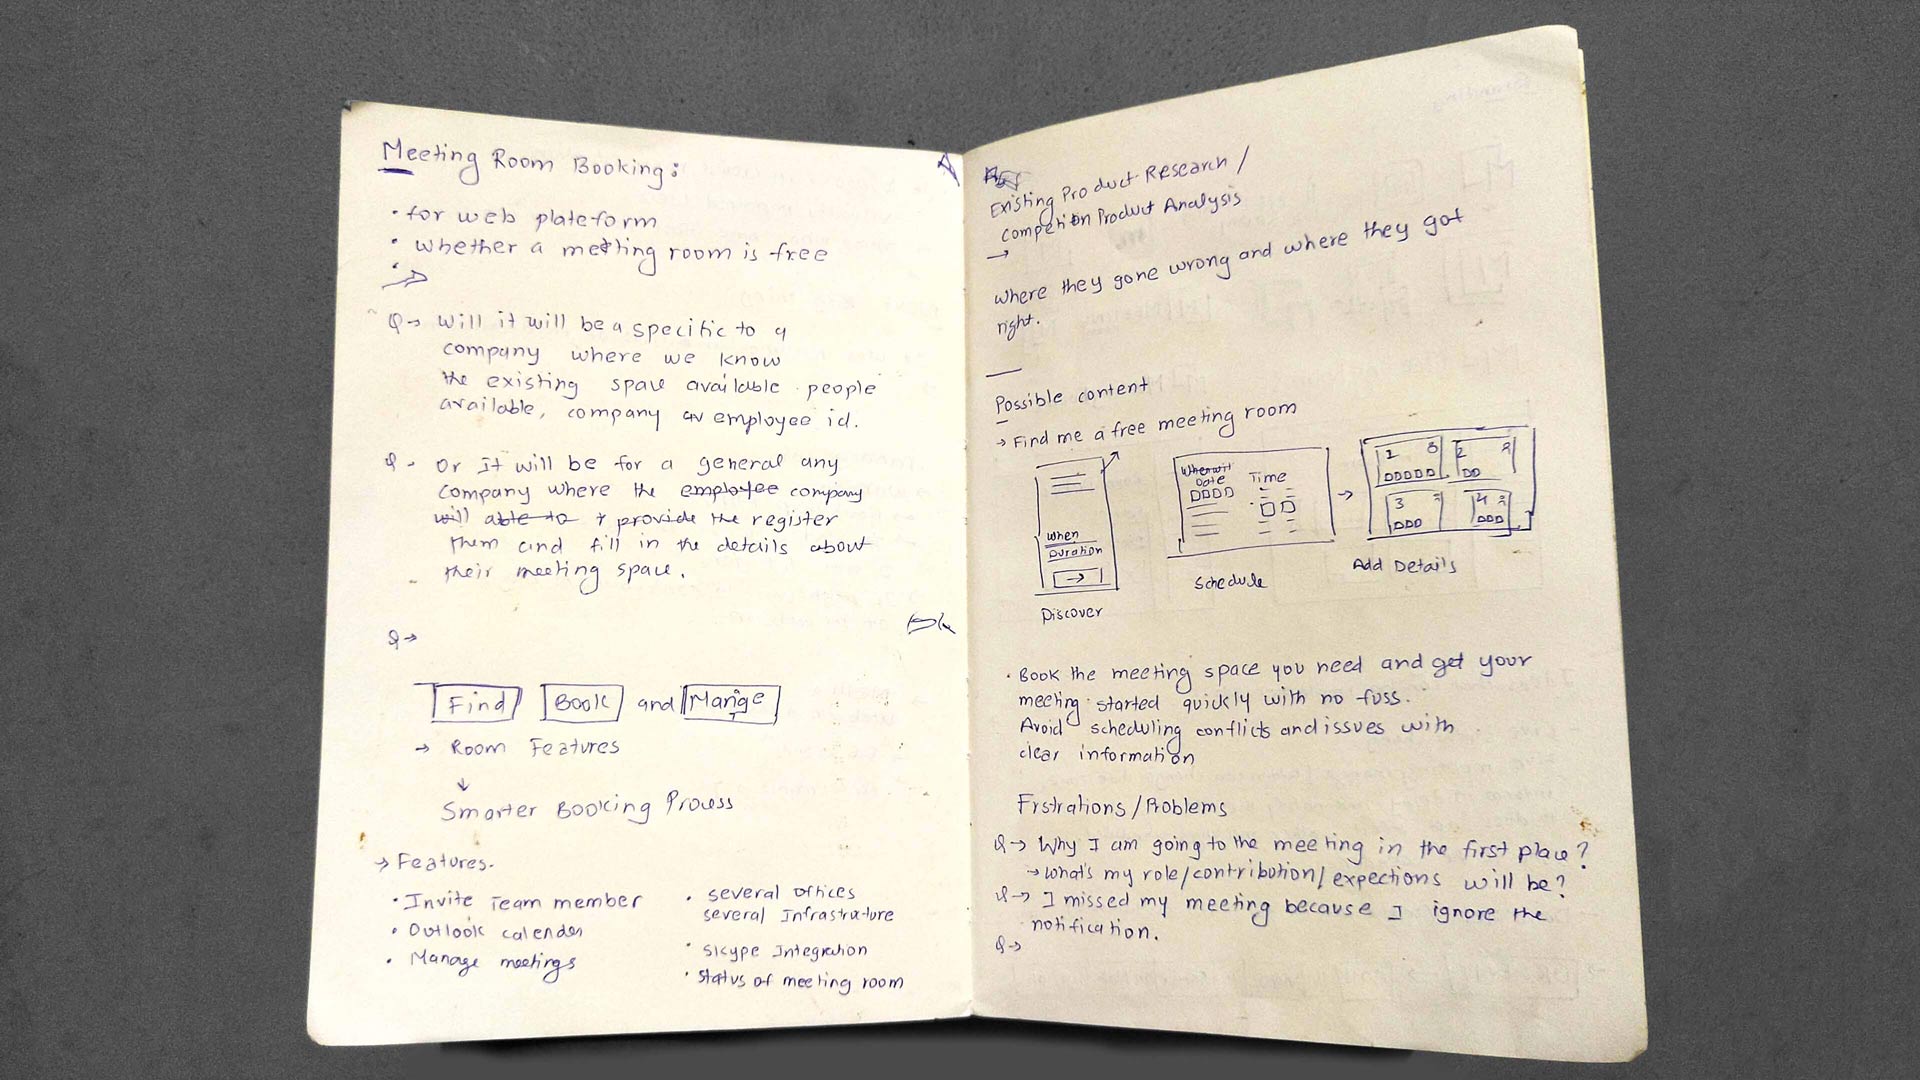 Meeting Room Booking:
• for web plateform
• whether a meeting room is free
Q → Will it will be a specific to a
company where we know
the existing space available people
available, company or employee id.
Q → Or It will be for a general any
company where the employee company
will able to provide the register
them and fill in the details about
their meeting space.
Q →
Find Book and Mange
→ Room Features
↓
Smarter Booking Process
→ Features.
• Invite Team member
• Outlook calender
• Manage meetings
• several offices
several Infrastrature
• Skype Integration
• status of meeting room
Existing Product Research /
Product Analysis
→
where they gone wrong and where they got
right.
Possible content
→ Find me a free meeting room
When
Duration
→
Discover
Date
Time
Schedule
→
1 8
2 2
3 2
4 2
Add Details
• Book the meeting space you need and get your
meeting started quickly with no fuss.
Avoid scheduling conflicts and issues with
clear information
Frstrations/Problems
Q → Why I am going to the meeting in the first place?
→ what's my role/contribution/expections will be?
Q → I missed my meeting because I ignore the
notification.
Q →